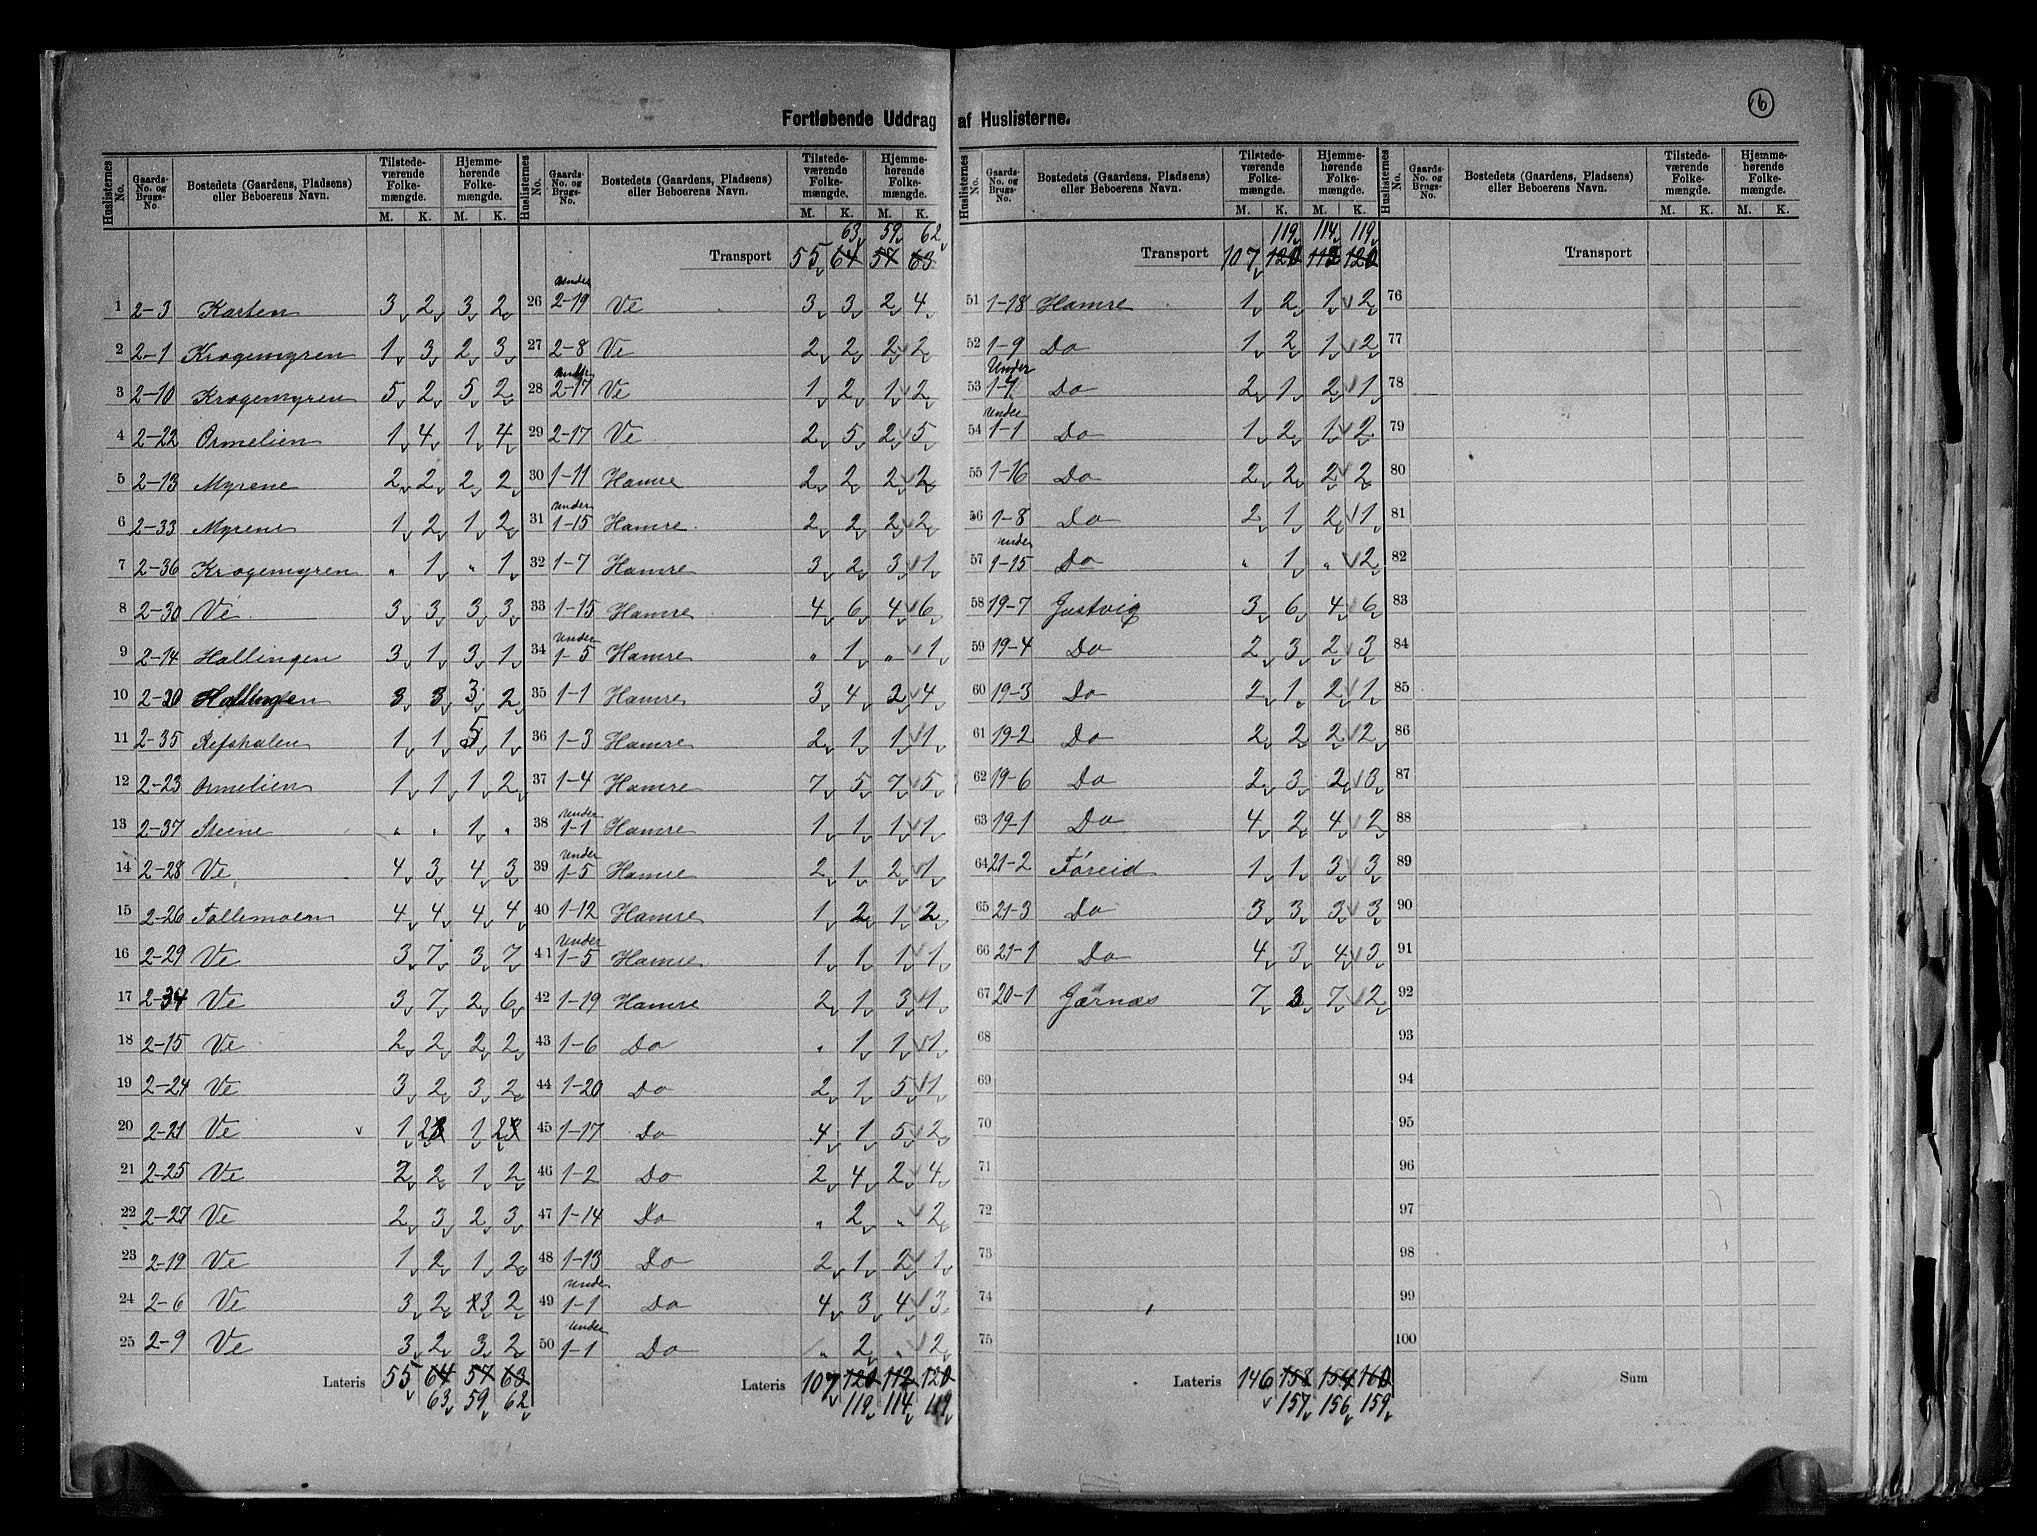 6
Fortløbende Uddrag af Huslisterne.
Huslisternes No. | Gaards-No. og Brugs-No. | Bostedets (Gaardens, Pladsens) eller Beboerens Navn. | Tilstedeværende Folkemængde. M. K. | Hjemmehørende Folkemængde. M. K.
1 2-3 Karten 3 2 3 2
2 2-1 Krogemyren 1 3 2 3
3 2-10 Krogemyren 5 2 5 2
4 2-22 Ormelien 1 4 1 4
5 2-13 Myrene 2 2 2 2
6 2-33 Myrene 1 2 1 2
7 2-36 Krogemyren " 1 " 1
8 2-30 Ve 3 3 3 3
9 2-14 Hallingen 3 1 3 1
10 2-20 Hallingen 3 3 3 2
11 2-35 Refshalen 1 1 5 1
12 2-23 Ormelien 1 1 1 2
13 2-37 Stene " " 1 "
14 2-28 Ve 4 3 4 3
15 2-26 Tallemoen 4 4 4 4
16 2-29 Ve 3 7 3 7
17 2-34 Ve 3 7 2 6
18 2-15 Ve 2 2 2 2
19 2-24 Ve 3 2 3 2
20 2-21 Ve 1 2 1 2
21 2-25 Ve 2 2 1 2
22 2-27 Ve 2 3 2 3
23 2-19 Ve 1 2 1 2
24 2-6 Ve 3 2 3 2
25 2-9 Ve 3 2 3 2
Lateris 55 64 57 63
63 59 62
Huslisternes No. | Gaards-No. og Brugs-No. | Bostedets (Gaardens, Pladsens) eller Beboerens Navn. | Tilstedeværende Folkemængde. M. K. | Hjemmehørende Folkemængde. M. K.
63 59 62
Transport 55 64 57 63
26 under 2-19 Ve 3 3 2 4
27 2-8 Ve 2 2 2 2
28 under 2-17 Ve 1 2 1 2
29 2-17 Ve 2 5 2 5
30 1-11 Hamre 2 2 2 2
31 under 1-15 Hamre 2 2 2 2
32 1-7 Hamre 3 2 3 1
33 1-15 Hamre 4 6 4 6
34 under 1-5 Hamre " 1 " 1
35 1-1 Hamre 3 4 2 4
36 1-3 Hamre 2 1 1 1
37 1-4 Hamre 7 5 7 5
38 under 1-1 Hamre 1 1 1 1
39 under 1-5 Hamre 2 1 2 1
40 1-12 Hamre 1 2 1 2
41 under 1-5 Hamre 1 1 1 1
42 1-19 Hamre 2 1 3 1
43 1-6 Do " 1 1 1
44 1-20 Do 2 1 5 1
45 1-17 Do 4 1 5 2
46 1-2 Do 2 4 2 4
47 1-14 Do " 2 " 2
48 1-13 Do 2 1 2 1
49 under 1-1 Do 4 3 4 3
50 under 1-1 Do " 2 " 2
Lateris 107 120 112 120
119 114 119
Huslisternes No. | Gaards-No. og Brugs-No. | Bostedets (Gaardens, Pladsens) eller Beboerens Navn. | Tilstedeværende Folkemængde. M. K. | Hjemmehørende Folkemængde. M. K.
119 114 119
Transport 107 120 112 120
51 1-18 Hamre 1 2 1 2
52 1-9 Do 1 2 1 2
53 Under 1-7 Do 2 1 2 1
54 under 1-1 Do 1 2 1 2
55 1-16 Do 2 2 2 2
56 1-8 Do 2 1 2 1
57 under 1-15 Do " 1 " 2
58 19-7 Justvig 3 6 4 6
59 19-4 Do 2 3 2 3
60 19-3 Do 2 1 2 1
61 19-2 Do 2 2 2 2
62 19-6 Do 2 3 2 3
63 19-1 Do 4 2 4 2
64 21-2 Føreid 1 1 3 3
65 21-3 Do 3 3 3 3
66 21-1 Do 4 3 4 3
67 20-1 Jærnæs 7 3 7 2
68
69
70
71
72
73
74
75
Lateris 146 158 154 160
157 156 159
Huslisternes No. | Gaards-No. og Brugs-No. | Bostedets (Gaardens, Pladsens) eller Beboerens Navn. | Tilstedeværende Folkemængde. M. K. | Hjemmehørende Folkemængde. M. K.
Transport
76
77
78
79
80
81
82
83
84
85
86
87
88
89
90
91
92
93
94
95
96
97
98
99
100
Sum